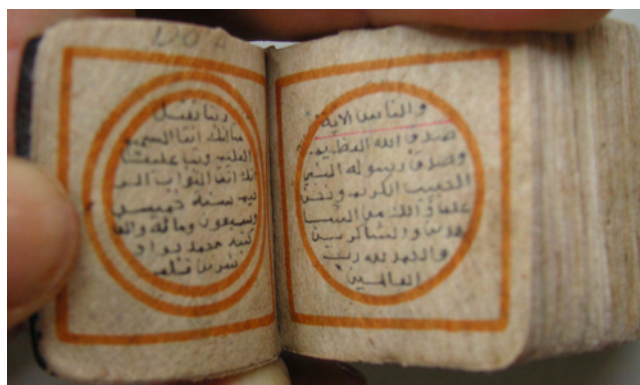 والناس الاية
صدق الله العظيم
وصدق رسوله النبي
الحبيب الكريم ونحن
علي ذالك من الشا
هدين والشاكرين
والحمد لله رب
العالمين
120
ربنا تقبل
منا انك انت السميع
العليم وتب علينا
انك انت التواب الر
سنة خمسين
وسبعون ومائة والف
كتبه محمد